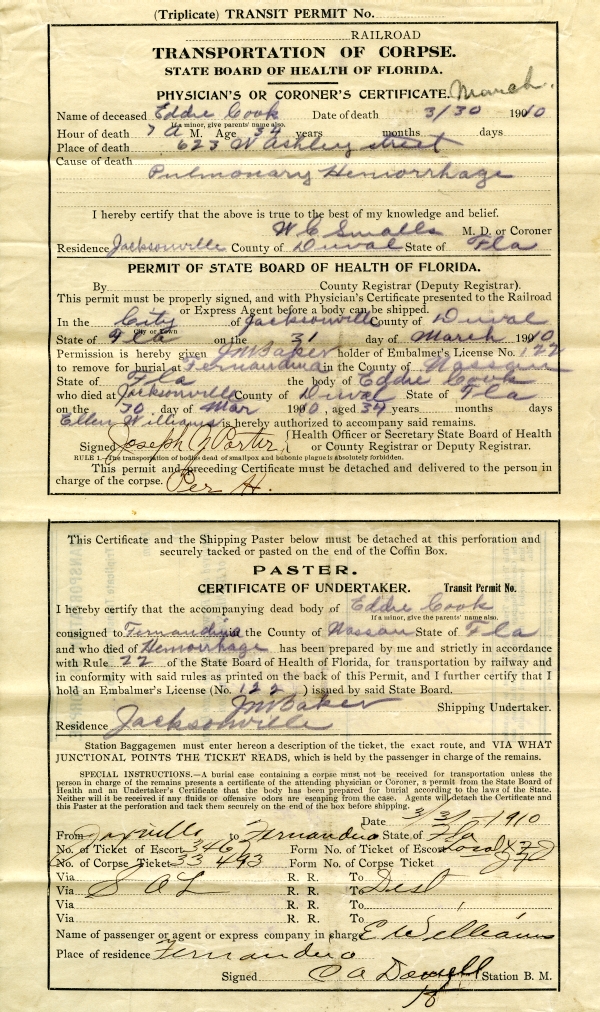 (Triplicate) TRANSIT PERMIT No.
RAILROAD
TRANSPORTATION OF CORPSE.
STATE BOARD OF HEALTH OF FLORIDA.
PHYSICIAN'S OR CORONER'S CERTIFICATE. March.
Name of deceased Eddie Cook Date of death 3/30 19010
If a minor, give parents' name also.
Hour of death 7 A M. Age 34 years months days
Place of death 623 W Ashley street
Cause of death
Pulmonary Hemorrhage
I hereby certify that the above is true to the best of my knowledge and belief.
W C Smalls M. D. or Coroner
Residence Jacksonville County of Duval State of Fla
PERMIT OF STATE BOARD OF HEALTH OF FLORIDA.
By County Registrar (Deputy Registrar).
This permit must be properly signed, and with Physician's Certificate presented to the Railroad
or Express Agent before a body can be shipped.
In the City of Jacksonville County of Duval
City or Town
State of Fla on the 31 day of March 19010
Permission is hereby given J M Baker holder of Embalmer's License No. 122
to remove for burial at Fernandina in the County of Nassau
State of Fla the body of Eddie Cook
who died at Jacksonville County of Duval State of Fla
on the 30 day of Mar 19010, aged 34 years months days
Ellen Williams is hereby authorized to accompany said remains.
Signed Joseph Y Porter (Health Officer or Secretary State Board of Health
or County Registrar or Deputy Registrar.
RULE 1.—The transportation of bodies dead of smallpox and bubonic plague is absolutely forbidden.
This permit and preceding Certificate must be detached and delivered to the person in
charge of the corpse. Per H.
This Certificate and the Shipping Paster below must be detached at this perforation and
securely tacked or pasted on the end of the Coffin Box.
PASTER.
CERTIFICATE OF UNDERTAKER. Transit Permit No.
I hereby certify that the accompanying dead body of Eddie Cook
If a minor, give the parents' name also.
consigned to Fernandina in the County of Nassau State of Fla
and who died of Hemorrhage has been prepared by me and strictly in accordance
with Rule 22 of the State Board of Health of Florida, for transportation by railway and
in conformity with said rules as printed on the back of this Permit, and I further certify that I
hold an Embalmer's License (No. 122 ) issued by said State Board.
J M Baker Shipping Undertaker.
Residence Jacksonville
Station Baggagemen must enter hereon a description of the ticket, the exact route, and VIA WHAT
JUNCTIONAL POINTS THE TICKET READS, which is held by the passenger in charge of the remains.
SPECIAL INSTRUCTIONS.—A burial case containing a corpse must not be received for transportation unless the
person in charge of the remains presents a certificate of the attending physician or Coroner, a permit from the State Board of
Health and an Undertaker's Certificate that the body has been prepared for burial according to the laws of the State.
Neither will it be received if any fluids or offensive odors are escaping from the case. Agents will detach the Certificate and
this Paster at the perforation and tack them securely on the end of the box before shipping.
Date 3/31/1910
From Jaxville to Fernandina State of Fla
No. of Ticket of Escort 3467 Form No. of Ticket of Escort Local
No. of Corpse Ticket 33493 Form No. of Corpse Ticket
Via S A L R. R. To Dest
Via R. R. To
Via R. R. To
Name of passenger or agent or express company in charge E Williams
Place of residence Fernandina
Signed Station B. M.